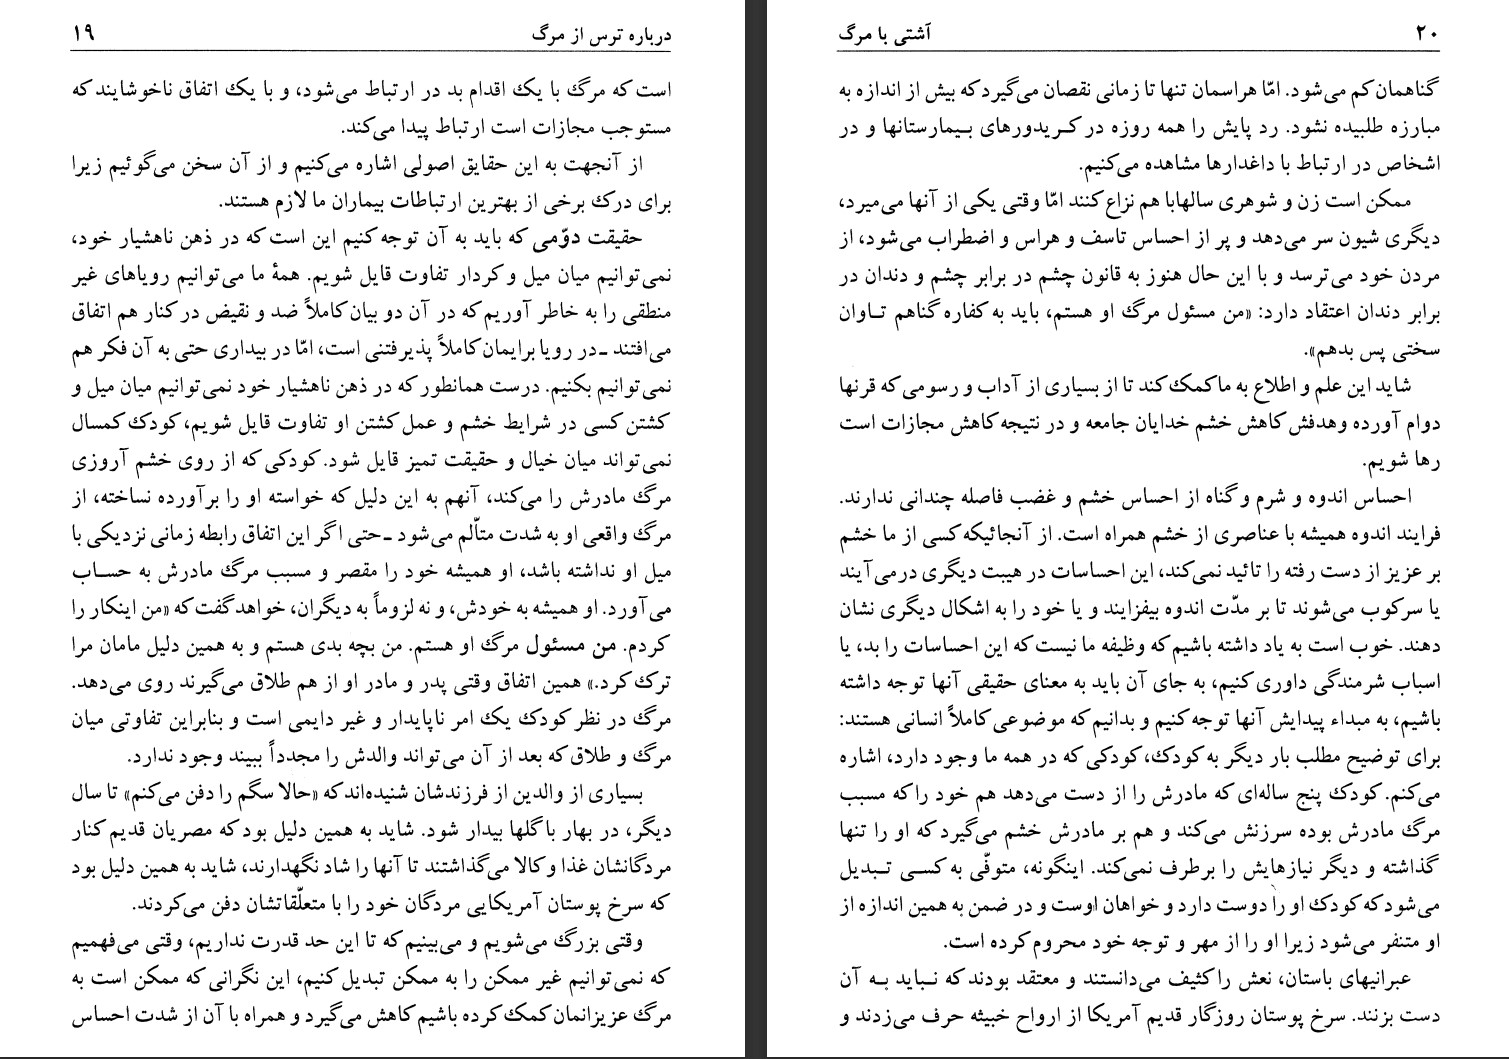 درباره ترس از مرگ ۱۹
است که مرگ با یک اقدام بد در ارتباط می‌شود، و با یک اتفاق ناخوشایند که
مستوجب مجازات است ارتباط پیدا می‌کند.
از آنجهت به این حقایق اصولی اشاره می‌کنیم و از آن سخن می‌گوئیم زیرا
برای درک برخی از بهترین ارتباطات بیماران ما لازم هستند.
حقیقت دوّمی که باید به آن توجه کنیم این است که در ذهن ناهشیار خود،
نمی‌توانیم میان میل و کردار تفاوت قایل شویم. همهٔ ما می‌توانیم رویاهای غیر
منطقی را به خاطر آوریم که در آن دو بیان کاملاً ضد و نقیض در کنار هم اتفاق
می‌افتند ـ در رویا برایمان کاملاً پذیرفتنی است، امّا در بیداری حتی به آن فکر هم
نمی‌توانیم بکنیم. درست همانطور که در ذهن ناهشیار خود نمی‌توانیم میان میل و
کشتن کسی در شرایط خشم و عمل کشتن او تفاوت قایل شویم، کودک کمسال
نمی‌تواند میان خیال و حقیقت تمیز قایل شود. کودکی که از روی خشم آروزی
مرگ مادرش را می‌کند، آنهم به این دلیل که خواسته او را برآورده نساخته، از
مرگ واقعی او به شدت متألّم می‌شود ـ حتی اگر این اتفاق رابطه زمانی نزدیکی با
میل او نداشته باشد، او همیشه خود را مقصر و مسبب مرگ مادرش به حساب
می‌آورد. او همیشه به خودش، و نه لزوماً به دیگران، خواهد گفت که «من اینکار را
کردم. من مسئول مرگ او هستم. من بچه بدی هستم و به همین دلیل مامان مرا
ترک کرد.» همین اتفاق وقتی پدر و مادر او از هم طلاق می‌گیرند روی می‌دهد.
مرگ در نظر کودک یک امر ناپایدار و غیر دایمی است و بنابراین تفاوتی میان
مرگ و طلاق که بعد از آن می‌تواند والدش را مجدداً ببیند وجود ندارد.
بسیاری از والدین از فرزندشان شنیده‌اند که «حالا سگم را دفن می‌کنم» تا سال
دیگر، در بهار با گلها بیدار شود. شاید به همین دلیل بود که مصریان قدیم کنار
مردگانشان غذا و کالا می‌گذاشتند تا آنها را شاد نگهدارند، شاید به همین دلیل بود
که سرخ پوستان آمریکایی مردگان خود را با متعلّقاتشان دفن می‌کردند.
وقتی بزرگ می‌شویم و می‌بینیم که تا این حد قدرت نداریم، وقتی می‌فهمیم
که نمی‌توانیم غیر ممکن را به ممکن تبدیل کنیم، این نگرانی که ممکن است به
مرگ عزیزانمان کمک کرده باشیم کاهش می‌گیرد و همراه با آن از شدت احساس
۲۰ آشتی با مرگ
گناهمان کم می‌شود. امّا هراسمان تنها تا زمانی نقصان می‌گیرد که بیش از اندازه به
مبارزه طلبیده نشود. رد پایش را همه روزه در کریدورهای بیمارستانها و در
اشخاص در ارتباط با داغدارها مشاهده می‌کنیم.
ممکن است زن و شوهری سالها با هم نزاع کنند امّا وقتی یکی از آنها می‌میرد،
دیگری شیون سر می‌دهد و پر از احساس تاسف و هراس و اضطراب می‌شود، از
مردن خود می‌ترسد و با این حال هنوز به قانون چشم در برابر چشم و دندان در
برابر دندان اعتقاد دارد: «من مسئول مرگ او هستم، باید به کفاره گناهم تاوان
سختی پس بدهم».
شاید این علم و اطلاع به ما کمک کند تا از بسیاری از آداب و رسومی که قرنها
دوام آورده و هدفش کاهش خشم خدایان جامعه و در نتیجه کاهش مجازات است
رها شویم.
احساس اندوه و شرم و گناه از احساس خشم و غضب فاصله چندانی ندارند.
فرایند اندوه همیشه با عناصری از خشم همراه است. از آنجائیکه کسی از ما خشم
بر عزیز از دست رفته را تائید نمی‌کند، این احساسات در هیبت دیگری درمی‌آیند
یا سرکوب می‌شوند تا بر مدّت اندوه بیفزایند و یا خود را به اشکال دیگری نشان
دهند. خوب است به یاد داشته باشیم که وظیفه ما نیست که این احساسات را بد، یا
اسباب شرمندگی داوری کنیم، به جای آن باید به معنای حقیقی آنها توجه داشته
باشیم، به مبداء پیدایش آنها توجه کنیم و بدانیم که موضوعی کاملاً انسانی هستند:
برای توضیح مطلب بار دیگر به کودک، کودکی که در همه ما وجود دارد، اشاره
می‌کنم. کودک پنج ساله‌ای که مادرش را از دست می‌دهد هم خود را که مسبب
مرگ مادرش بوده سرزنش می‌کند و هم بر مادرش خشم می‌گیرد که او را تنها
گذاشته و دیگر نیازهایش را برطرف نمی‌کند. اینگونه، متوفّی به کسی تبدیل
می‌شود که کودک او را دوست دارد و خواهان اوست و در ضمن به همین اندازه از
او متنفر می‌شود زیرا او را از مهر و توجه خود محروم کرده است.
عبرانیهای باستان، نعش را کثیف می‌دانستند و معتقد بودند که نباید به آن
دست بزنند. سرخ پوستان روزگار قدیم آمریکا از ارواح خبیثه حرف می‌زدند و